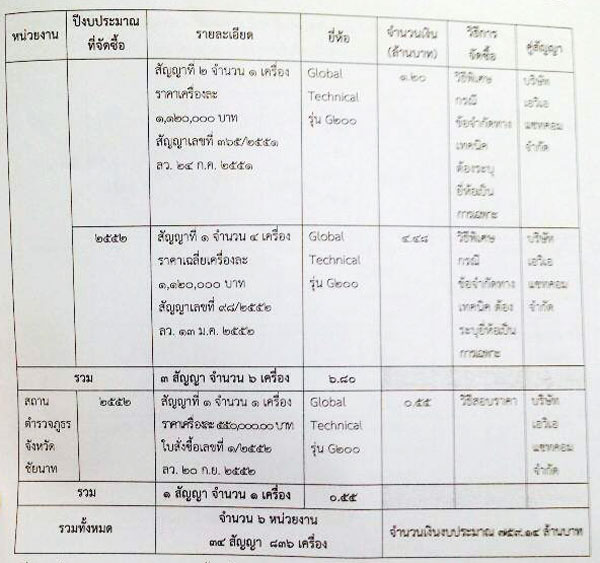 หน่วยงาน
ปีงบประมาณ
ที่จัดซื้อ
รายละเอียด
ยี่ห้อ
จำนวนเงิน
(ล้านบาท)
วิธีการ
จัดซื้อ
คู่สัญญา
สัญญาที่ ๒ จำนวน ๑ เครื่อง
ราคาเครื่องละ
๑,๑๒๐,๐๐๐ บาท
สัญญาเลขที่ ๓๖๕/๒๕๕๑
ลว. ๒๔ ก.ค. ๒๕๕๑
Global
Technical
รุ่น G๒๐๐
๑.๒๐
วิธีพิเศษ
กรณี
ข้อจำกัดทาง
เทคนิค
ต้องระบุ
ยี่ห้อเป็น
การเฉพาะ
บริษัท
เอวิเอ
แซทคอม
จำกัด
๒๕๕๒
สัญญาที่ ๑ จำนวน ๔ เครื่อง
ราคาเฉลี่ยเครื่องละ
๑,๑๒๐,๐๐๐ บาท
สัญญาเลขที่ ๙๘/๒๕๕๒
ลว. ๑๓ ม.ค. ๒๕๕๒
Global
Technical
รุ่น G๒๐๐
๔.๔๘
วิธีพิเศษ
กรณี
ข้อจำกัดทาง
เทคนิค ต้อง
ระบุยี่ห้อเป็น
การเฉพาะ
บริษัท
เอวิเอ
แซทคอม
จำกัด
รวม
๓ สัญญา จำนวน ๖ เครื่อง
๖.๘๐
สถานี
ตำรวจภูธร
จังหวัด
ชัยนาท
๒๕๕๒
สัญญาที่ ๑ จำนวน ๑ เครื่อง
ราคาเครื่องละ ๕๕๐,๐๐๐.๐๐ บาท
ใบสั่งซื้อเลขที่ ๑/๒๕๕๒
ลว. ๒๐ ก.ย. ๒๕๕๒
Global
Technical
รุ่น G๒๐๐
๐.๕๕
วิธีสอบราคา
บริษัท
เอวิเอ
แซทคอม
จำกัด
รวม
๑ สัญญา จำนวน ๑ เครื่อง
๐.๕๕
รวมทั้งหมด
จำนวน ๖ หน่วยงาน
๓๔ สัญญา ๘๓๖ เครื่อง
จำนวนเงินงบประมาณ ๗๕๙.๑๔ ล้านบาท